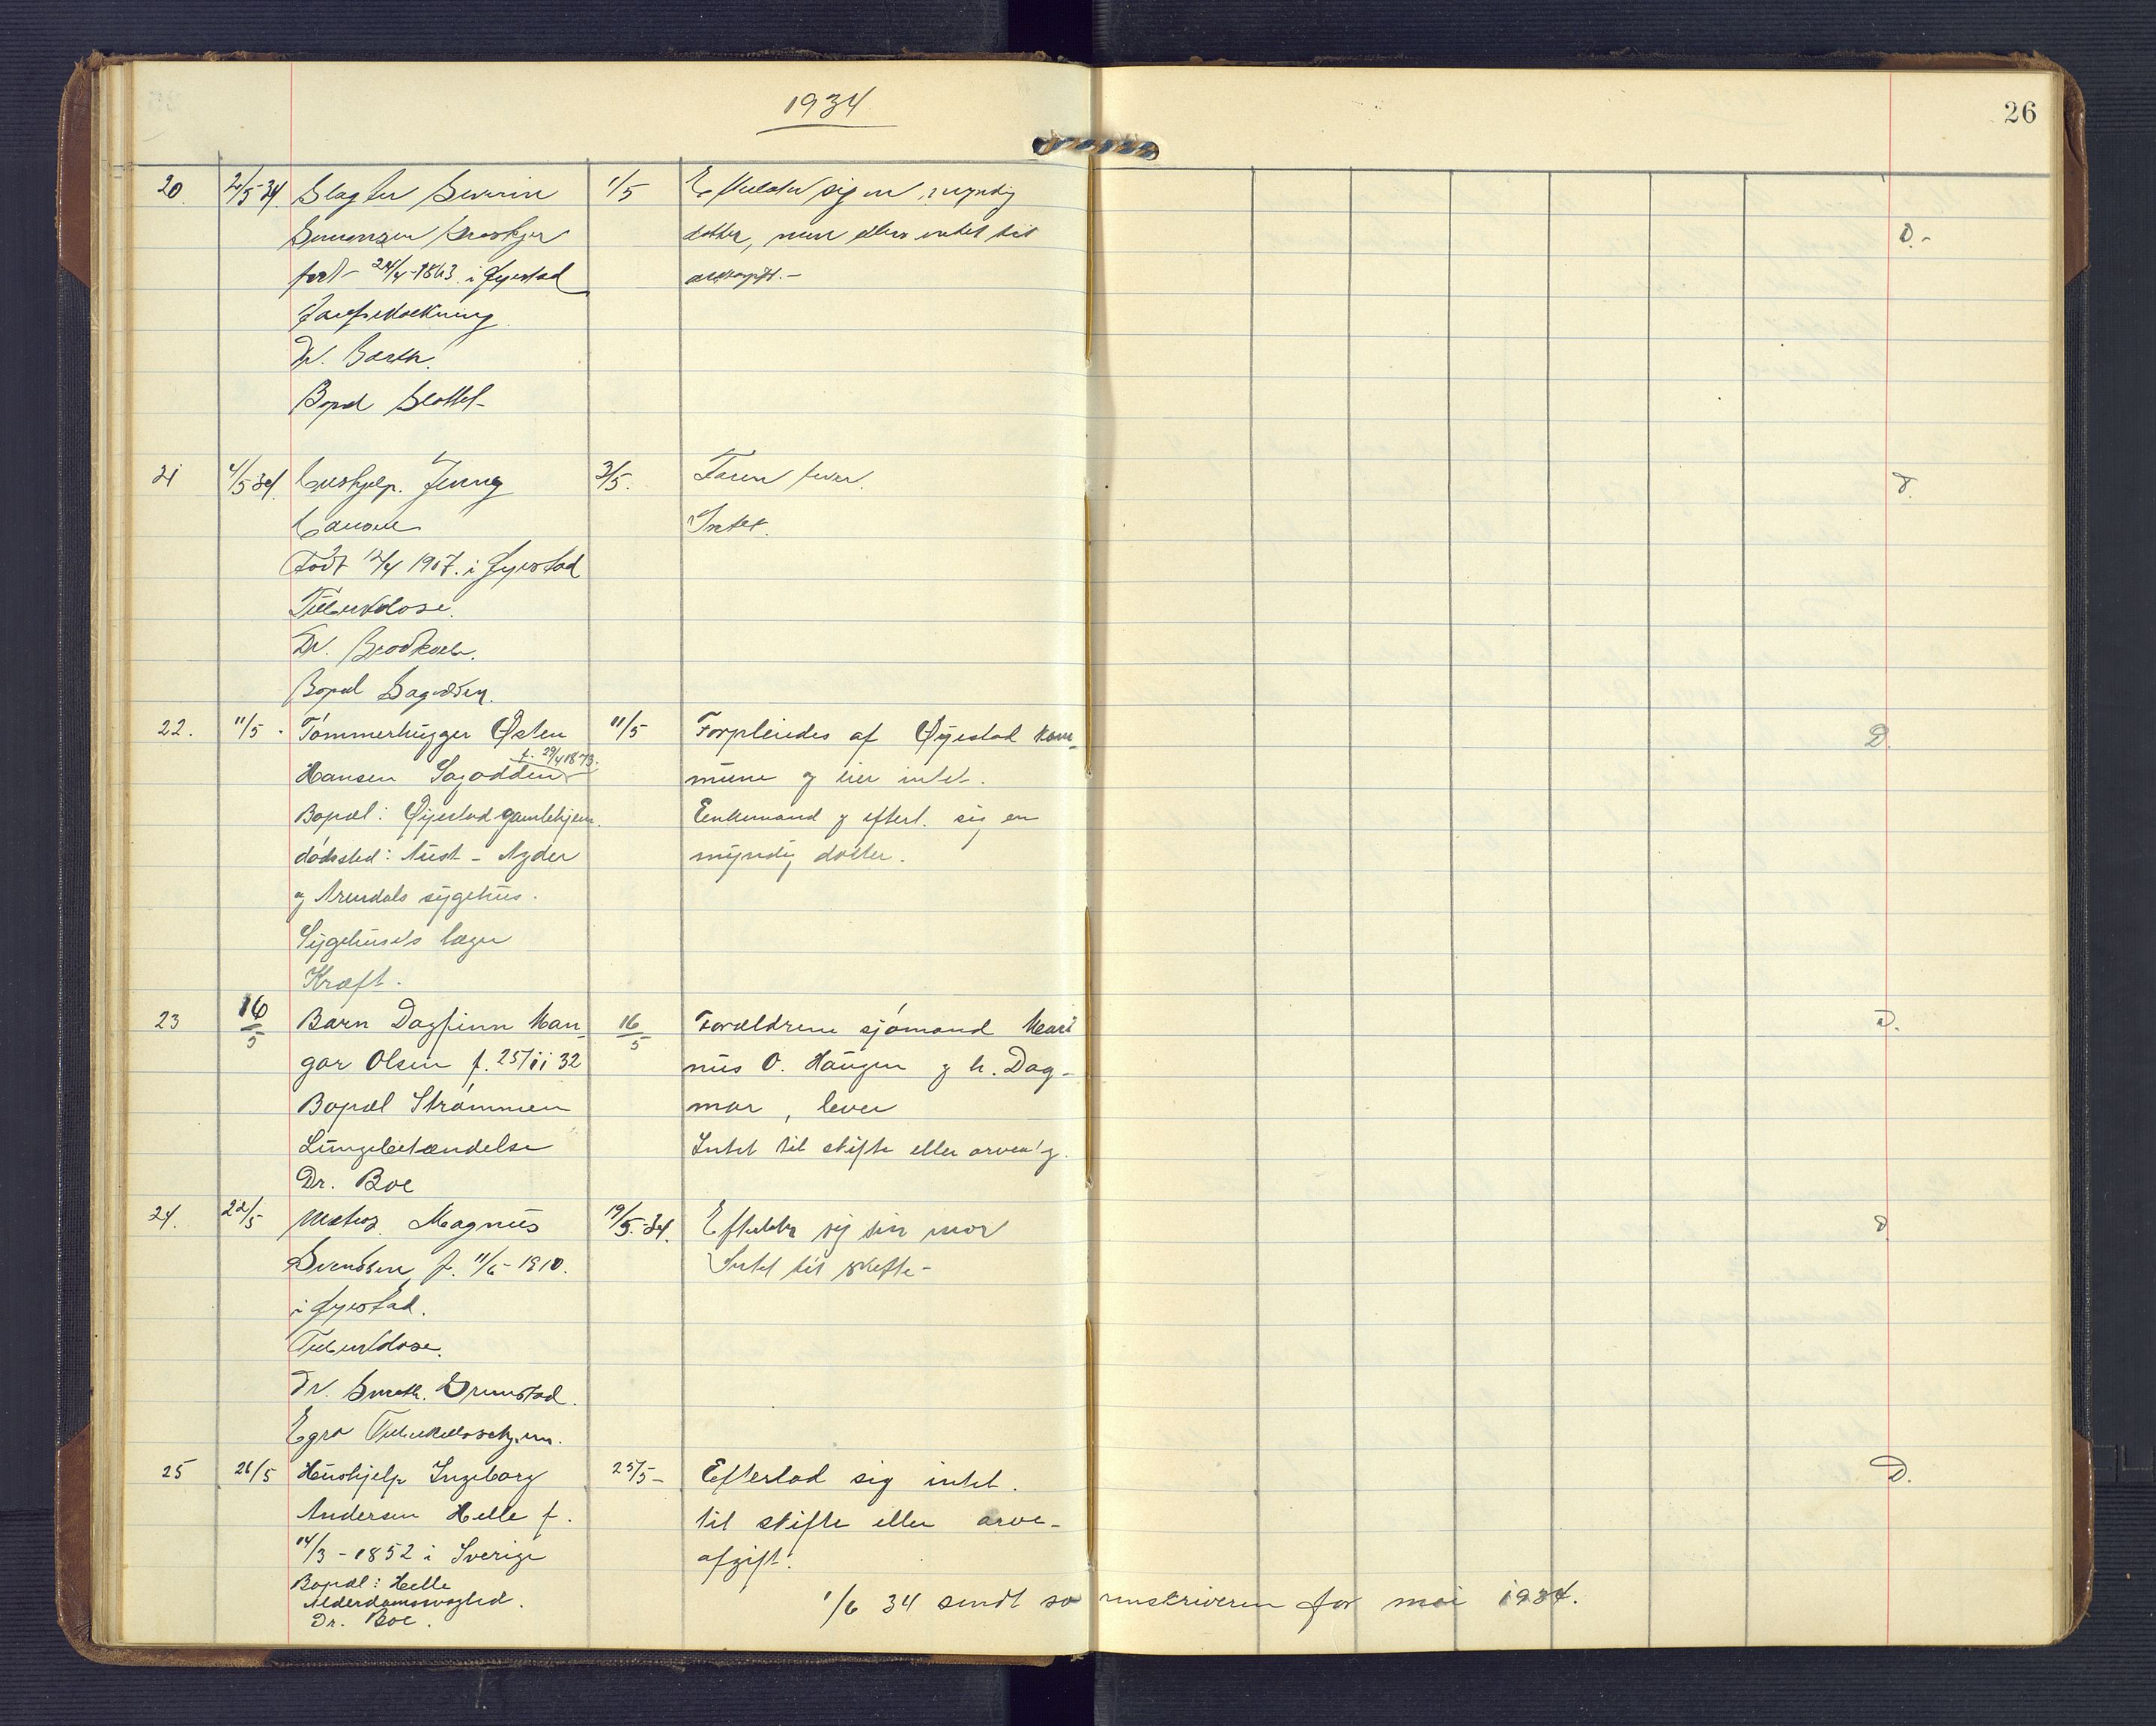 1934
26
20. 2/5-34 Slagter Severin 1/5 Efterlater sig en myndig
datter, men ellers intet til
D.-
født 24/4-1863 i Øyestad
Dr. Barth.
Bopæl Slottet-
21 4/5 34. Hushjelp. Jenny 3/5. Faren lever.
Intet.
Født 12/4 1907. i Øyestad
Tuberkulose.
Dr.
Bopæl Sagodden.
22. 11/5 - Tømmerhugger Østen 11/5 Forpleiedes af Øyestad kom-
D.
f. 29/4 1873.
Hansen Sagodden mune og eier intet.
Bopæl: Øijestad gamlehjem. Enkemand og efterl. sig en
dødssted: Aust-Agder myndig datter.
og Arendals sygehus.
Sygehusets læge
Kræft.
23 16/5 Barn Dagfinn Han- 16/5 Forældrene sjømand Mari
D.
gar Olsen f. 25/11 32 nus O. Haugen og h. Dag-
Bopæl Strømmen mar, lever
Lungebetændelse Intet til skifte eller arveavg.
Dr. Boe
24. 22/5 Matros Magnus 19/5-34. Efterlater sig sin mor
D
Svendsen f. 11/6-1910. Intet til skifte-
i Øyestad.
Tuberkulose.
Dr. Smith. Grimstad.
Egra Tuberkulosehjem.
25 26/5 Hushjelp Ingeborg 25/5- Efterlod sig intet.
D.
Andersen Helle f. til skifte eller arve-
14/3-1852 i Sverige afgift.
Bopæl: Helle
Alderdomssvaghed.
Dr. Boe.
1/6 34 sendt sorenskriveren for mai 1934.